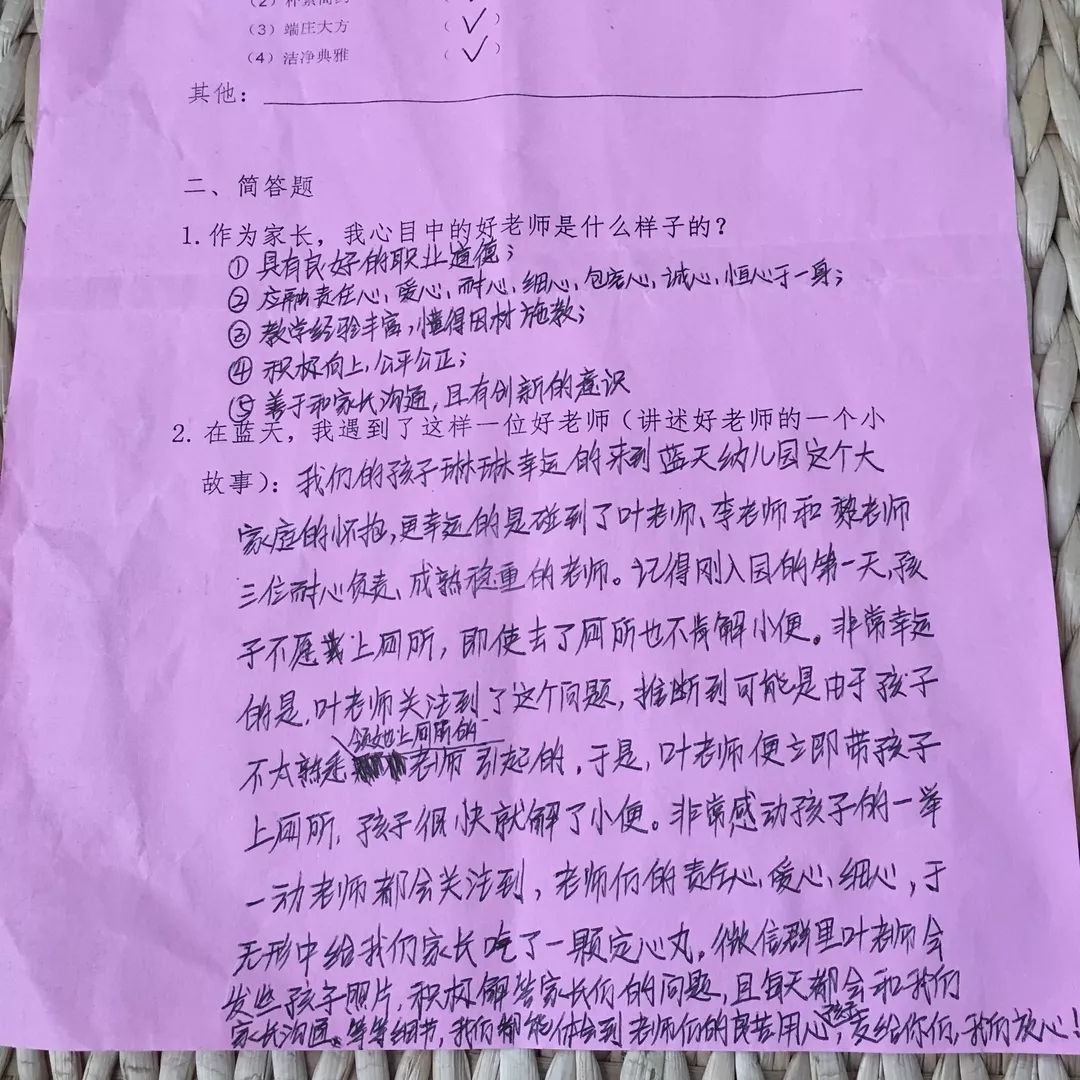 (2) 朴素简约 (✓)
(3) 端庄大方 (✓)
(4) 洁净典雅 (✓)
其他：
二、简答题
1. 作为家长，我心目中的好老师是什么样子的？
① 具有良好的职业道德；
② 应融责任心，爱心，耐心，细心，包容心，诚心，恒心于一身；
③ 教学经验丰富，懂得因材施教；
④ 积极向上，公平公正；
⑤ 善于和家长沟通，且有创新的意识
2. 在蓝天，我遇到了这样一位好老师（讲述好老师的一个小
故事）：我们的孩子琳琳幸运的来到蓝天幼儿园这个大
家庭的怀抱，更幸运的是碰到了叶老师、李老师和黎老师
三位耐心负责、成熟稳重的老师。记得刚入园的第一天，孩
子不愿意上厕所，即使去了厕所也不肯解小便。非常幸运
的是，叶老师关注到了这个问题，推断到可能是由于孩子
领她上厕所的
不太熟悉老师引起的，于是，叶老师便立即带孩子
上厕所，孩子很快就解了小便。非常感动孩子的一举
一动老师都会关注到，老师们的责任心，爱心，细心，于
无形中给我们家长吃了一颗定心丸。微信群里叶老师会
发些孩子照片，积极解答家长们的问题，且每天都会和我们
家长沟通。等等细节，我们都能体会到老师们的良苦用心，孩子交给你们，我们放心！